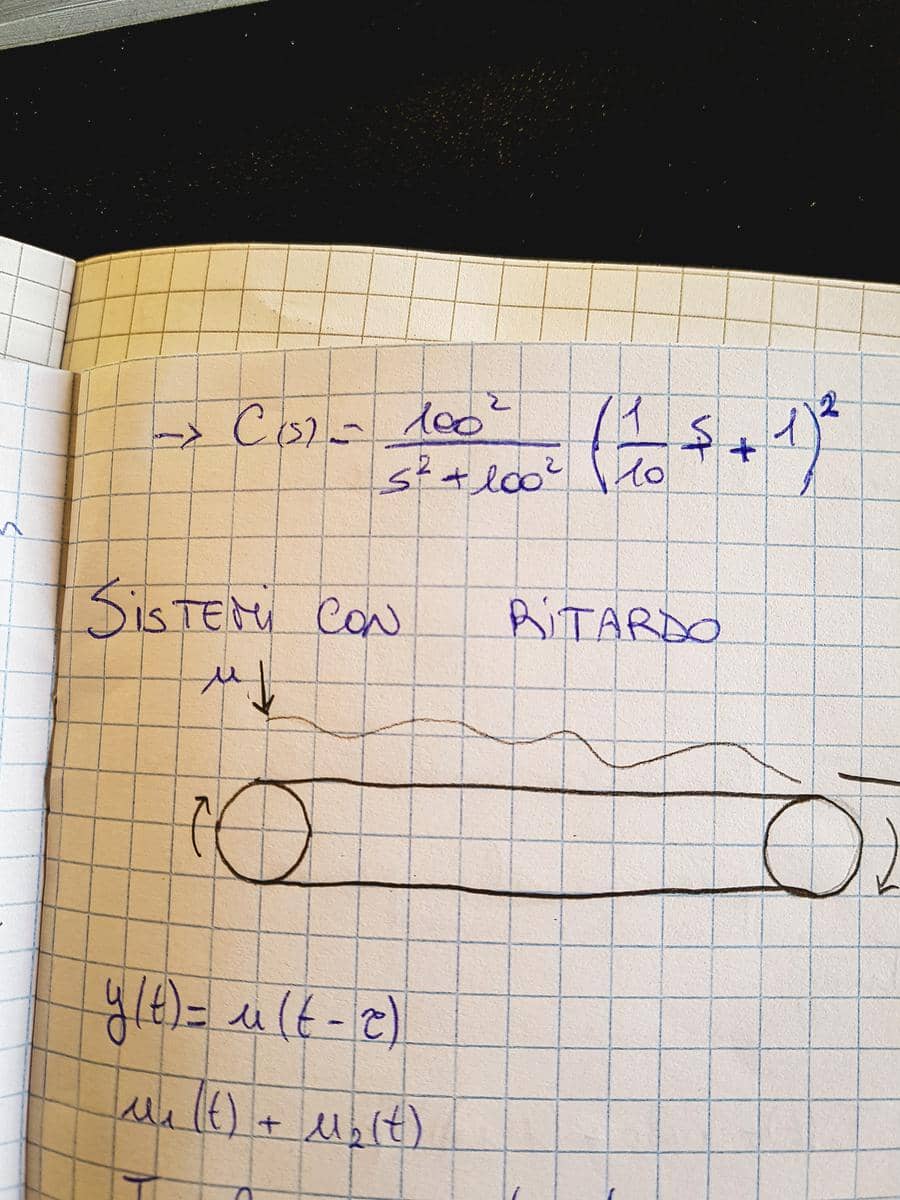 → C(s) = 100² / (s² + 100²) (1/10 s + 1)²
SISTEMi CON RiTARDO
u ↓
y(t) = u(t - τ)
u₁(t) + u₂(t)